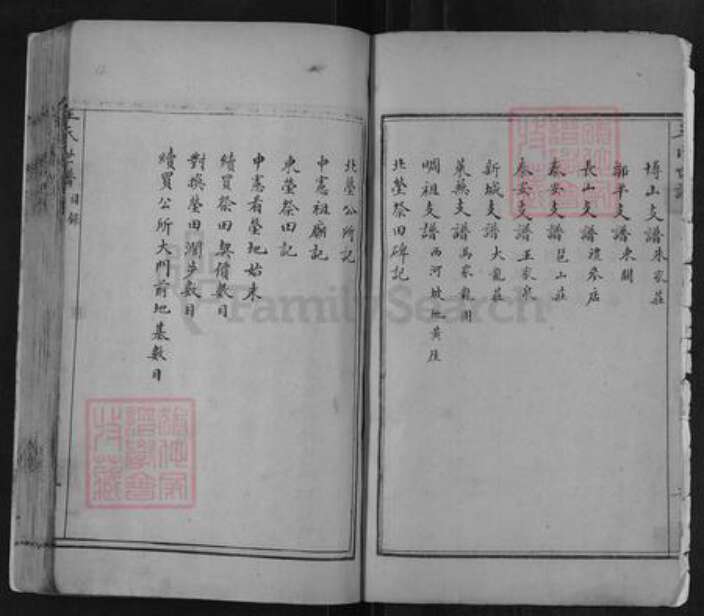 博山支譜朱家莊
鄒平支譜東關
長山支譜禮參店
泰安支譜邑山莊
泰安支譜王家泉
新城支譜大寵莊
萊蕪支譜馬家龍潤
嵎祖支譜西河坡地黃崖
北塋祭田碑記
北塋公所記
中憲祖廟記
東塋祭田記
中憲看塋地始末
續買祭田契價數目
對換塋田潤步數目
續買公所大門前地基數目
氏世譜 目錄
FamilySearch